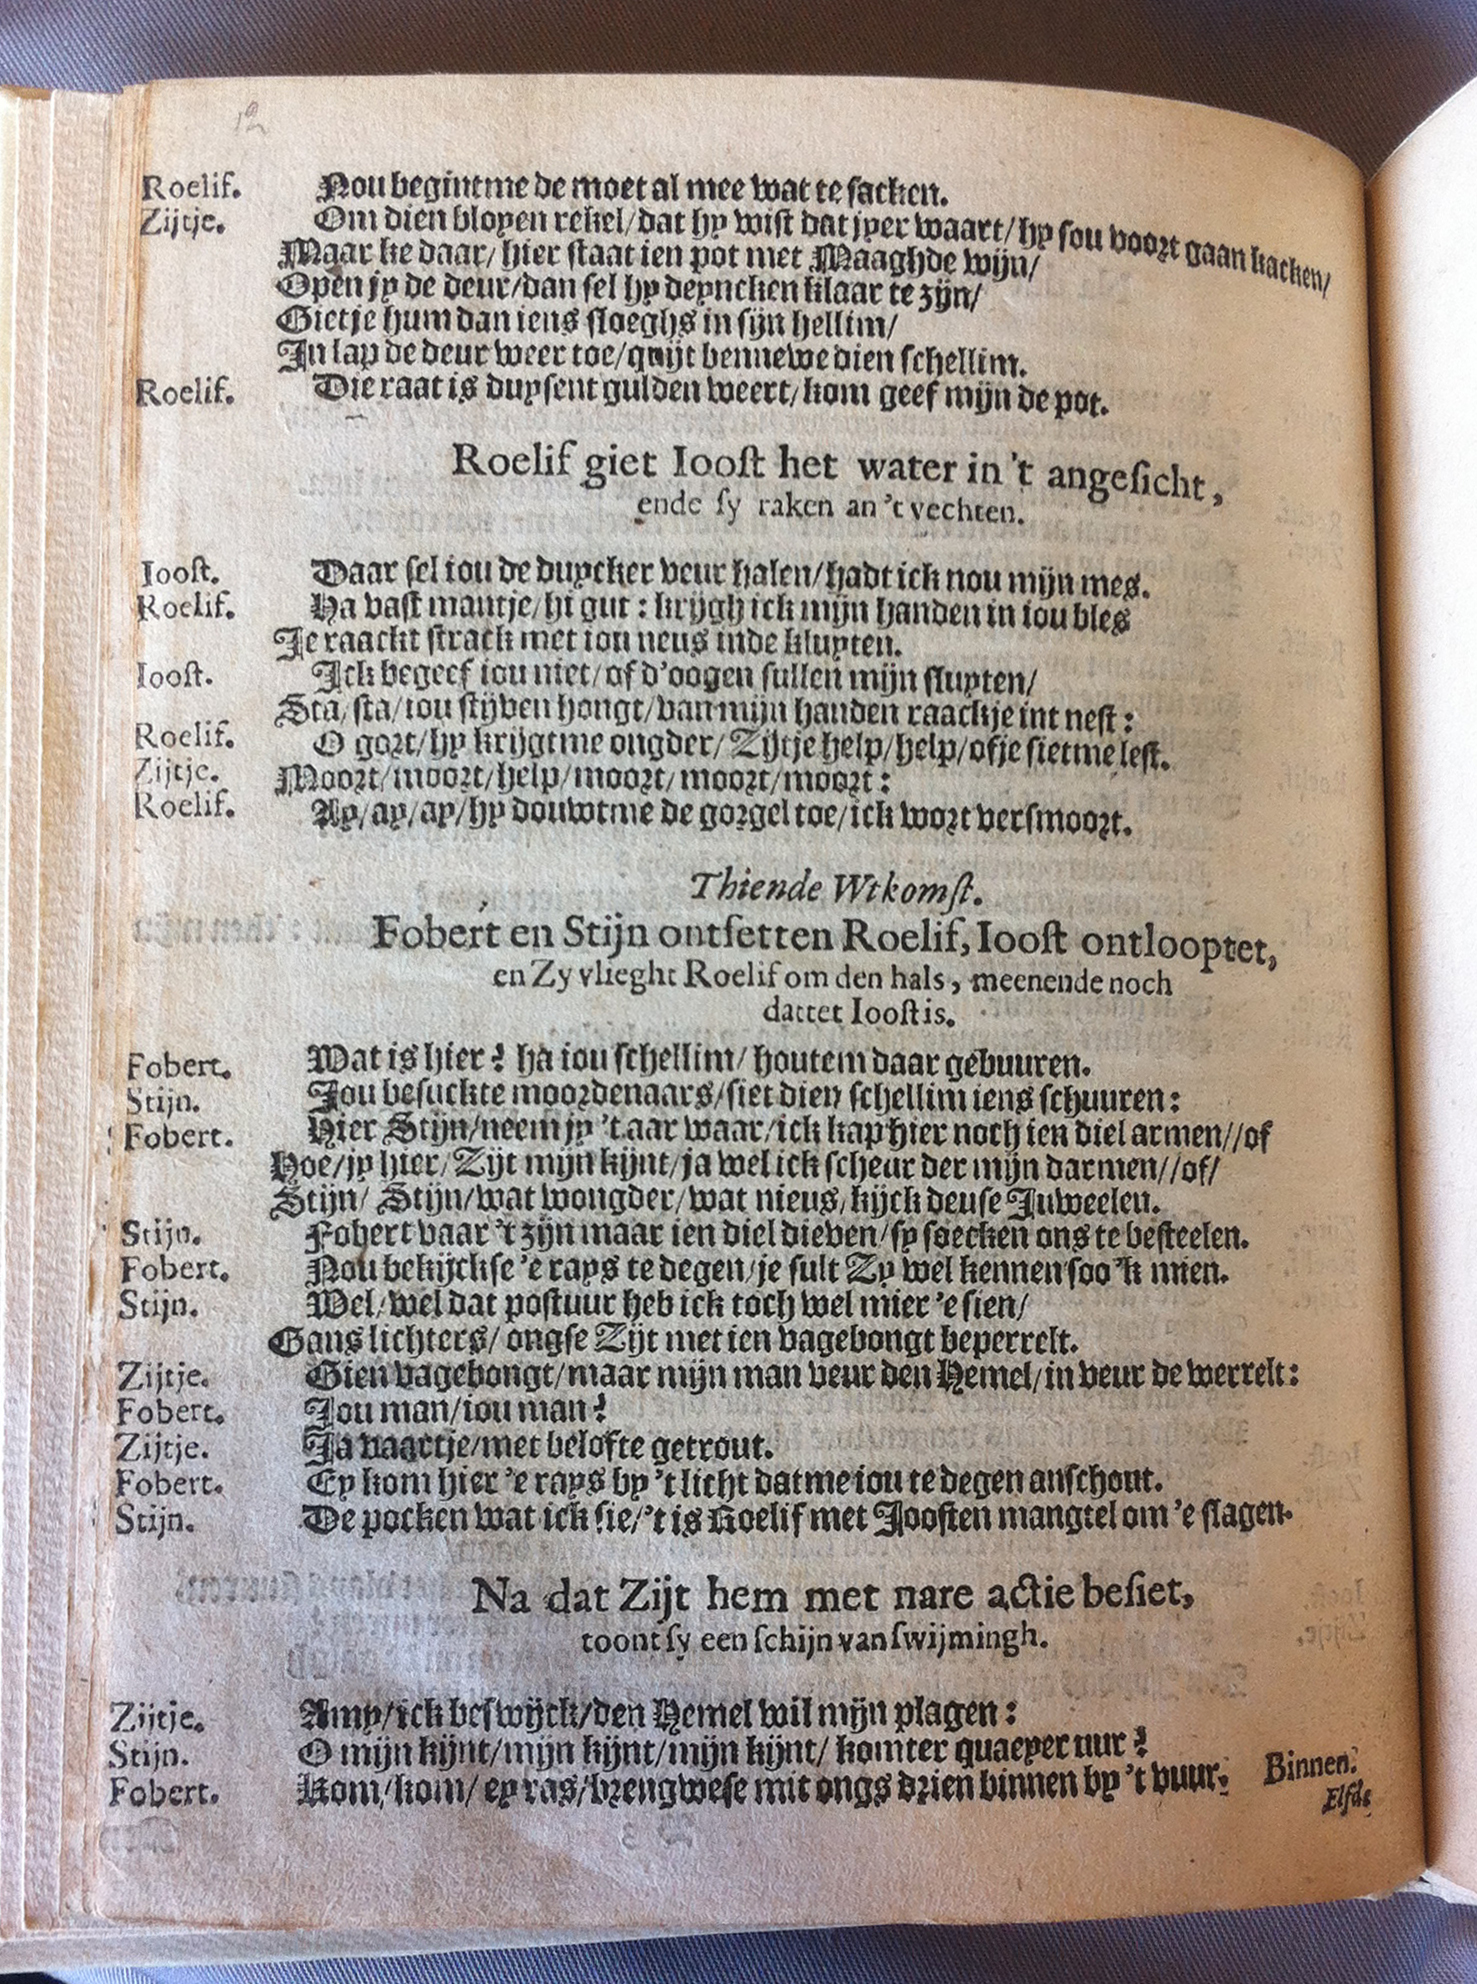 12
Roelif. Nou begintme de moet al mee wat te sacken.
Zijtje. Om dien bloyen rekel/dat hy wist dat jyer waart/hy sou voort gaan kacken/
Maar ke daar/hier staat ien pot met Maaghde wijn/
Open jy de deur/dan sel hy deyncken klaar te zijn/
Gietje hum dan iens sloeghs in sijn hellim/
In lap de deur weer toe/quijt bennewe dien schellim.
Roelif. Die raat is duysent gulden weert/kom geef mijn de pot.
Roelif giet Ioost het water in 't angesicht,
ende sy raken an 't vechten.
Ioost. Daar sel iou de duycker veur halen/hadt ick nou mijn mes.
Roelif. Ha vast mantje/hi gut: krijgh ick mijn handen in iou bles
Je raackt strack met iou neus inde kluyten.
Ioost. Ick begeef iou niet/of d'oogen sullen mijn sluyten/
Sta/sta/iou stijven hongt/van mijn handen raackje int nest:
Roelif. O gort/hy krijgtme ongder/Zijtje help/help/ofje sietme lest.
Zijtje. Moort/moort/help/moort/moort/moort:
Roelif. Ay/ay/ay/hy douwtme de gorgel toe/ick wort versmoort.
Thiende Wtkomst.
Fobert en Stijn ontsetten Roelif, Ioost ontlooptet,
en Zy vlieght Roelif om den hals, meenende noch
dattet Ioost is.
Fobert. Wat is hier? ha iou schellim/houtem daar gebuuren.
Stijn. Jou besuckte moordenaars/siet dien schellim iens schuuren:
Fobert. Hier Stijn/neem jy 't aar waar/ick kap hier noch ien diel armen//of
Hoe/jy hier/Zijt mijn kijnt/ja wel ick scheur der mijn darmen//of/
Stijn/Stijn/wat wongder/wat nieus/kijck deuse Juweelen.
Stijn. Fobert vaar 't zijn maar ien diel dieven/sy soecken ons te besteelen.
Fobert. Nou bekijckse 'e rays te degen/je sult Zy wel kennen soo 'k mien.
Stijn. Wel/wel dat postuur heb ick toch wel mier 'e sien/
Gans lichters/ongse Zijt met ien vagebongt beperrelt.
Zijtje. Gien vagebongt/maar mijn man veur den Hemel/in veur de werrelt:
Fobert. Jou man/iou man?
Zijtje. Ja vaartje/met belofte getrout.
Fobert. Ey kom hier 'e rays by 't licht datme iou te degen anschout.
Stijn. De pocken wat ick sie/'t is Roelif met Joosten mangtel om 'e slagen.
Na dat Zijt hem met nare actie besiet,
toont sy een schijn van swijmingh.
Zijtje. Amy/ick beswijck/den Hemel wil mijn plagen:
Stijn. O mijn kijnt/mijn kijnt/mijn kijnt/komter quaeyer uur?
Fobert. Kom/kom/ey ras/brengwese mit ongs drien binnen by 't vuur. Binnen.
Elfde